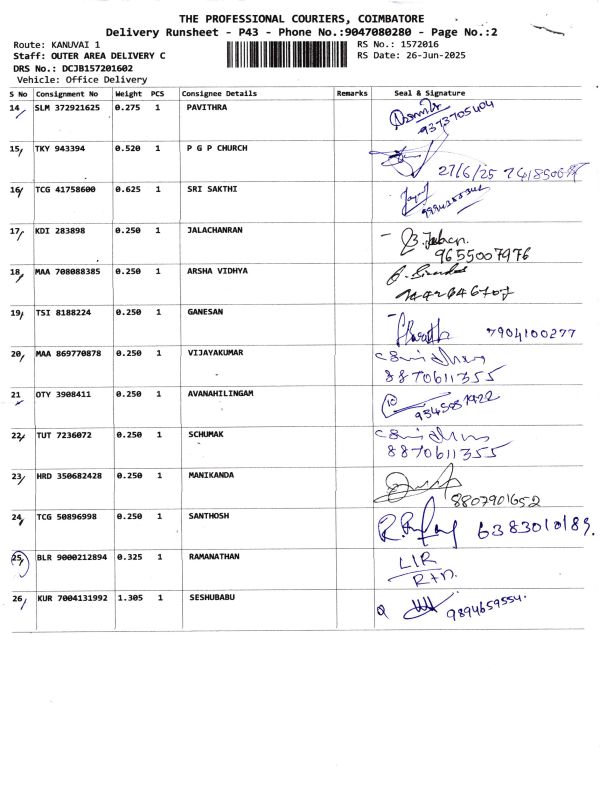 THE PROFESSIONAL COURIERS, COIMBATORE
Delivery Runsheet - P43 - Phone No.:9047080280 - Page No.:2
Route: KANUVAI 1 RS No.: 1572016
Staff: OUTER AREA DELIVERY C RS Date: 26-Jun-2025
DRS No.: DCJB157201602
Vehicle: Office Delivery
S No Consignment No Weight PCS Consignee Details Remarks Seal & Signature
14 SLM 372921625 0.275 1 PAVITHRA
9373705404
15 TKY 943394 0.520 1 P G P CHURCH
27/6/25
16 TCG 41758600 0.625 1 SRI SAKTHI
17 KDI 283898 0.250 1 JALACHANRAN
9655007976
18 MAA 708088385 0.250 1 ARSHA VIDHYA
19 TSI 8188224 0.250 1 GANESAN 7904100277
20 MAA 869770878 0.250 1 VIJAYAKUMAR
8870611355
21 OTY 3908411 0.250 1 AVANAHILINGAM
22 TUT 7236072 0.250 1 SCHUMAK
8870611355
23 HRD 350682428 0.250 1 MANIKANDA
8807901652
24 TCG 50896998 0.250 1 SANTHOSH 6383010189.
25 BLR 9000212894 0.325 1 RAMANATHAN LIR
R+n.
26 KUR 7004131992 1.305 1 SESHUBABU 9894659554.